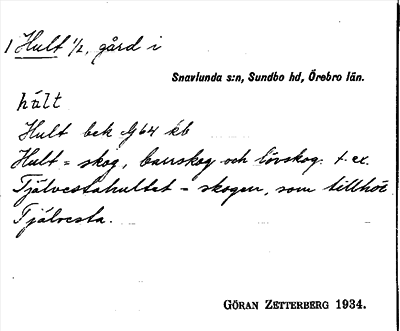 1 Hult 1/2, gård i
Snavlunda s:n, Sundbo hd, Örebro län.
hult
Hult bek G64 kb
Hult = skog, barrskog och lövskog. t. ex.
Tjälvestahultet = skogen, som tillhör
Tjälvesta.
GÖRAN ZETTERBERG 1934.